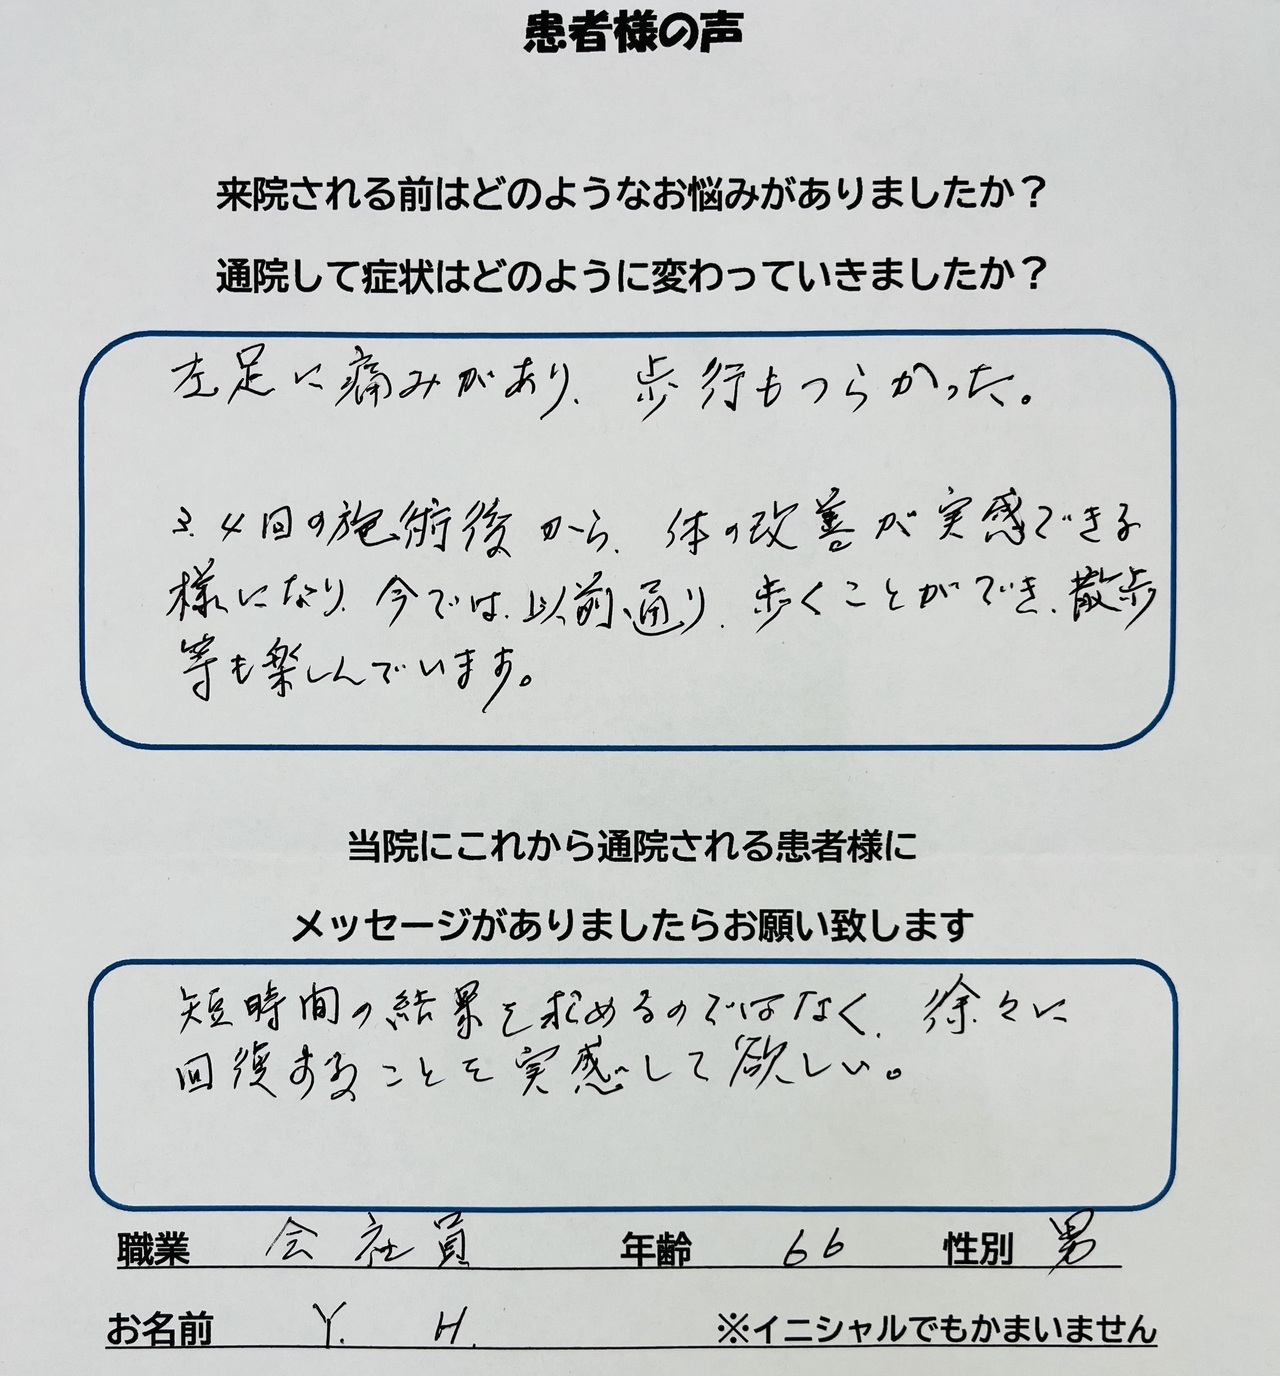 患者様の声
来院される前はどのようなお悩みがありましたか？
通院して症状はどのように変わっていきましたか？
左足に痛みがあり、歩行もつらかった。
3.4回の施術後から、体の改善が実感できる
様になり、今では、以前通り、歩くことができ、散歩
等も楽しんでいます。
当院にこれから通院される患者様に
メッセージがありましたらお願い致します
短時間の結果を求めるのではなく、徐々に
回復することを実感して欲しい。
職業 会社員 年齢 66 性別 男
お名前 Y. H. ※イニシャルでもかまいません